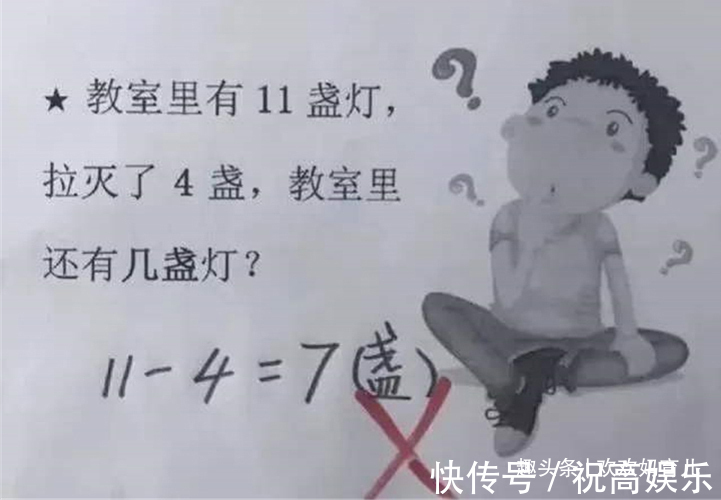 ★ 教室里有 11 盏灯，
拉灭了 4 盏，教室里
还有几盏灯？
11-4=7(盏)
快传号／祝高娱乐